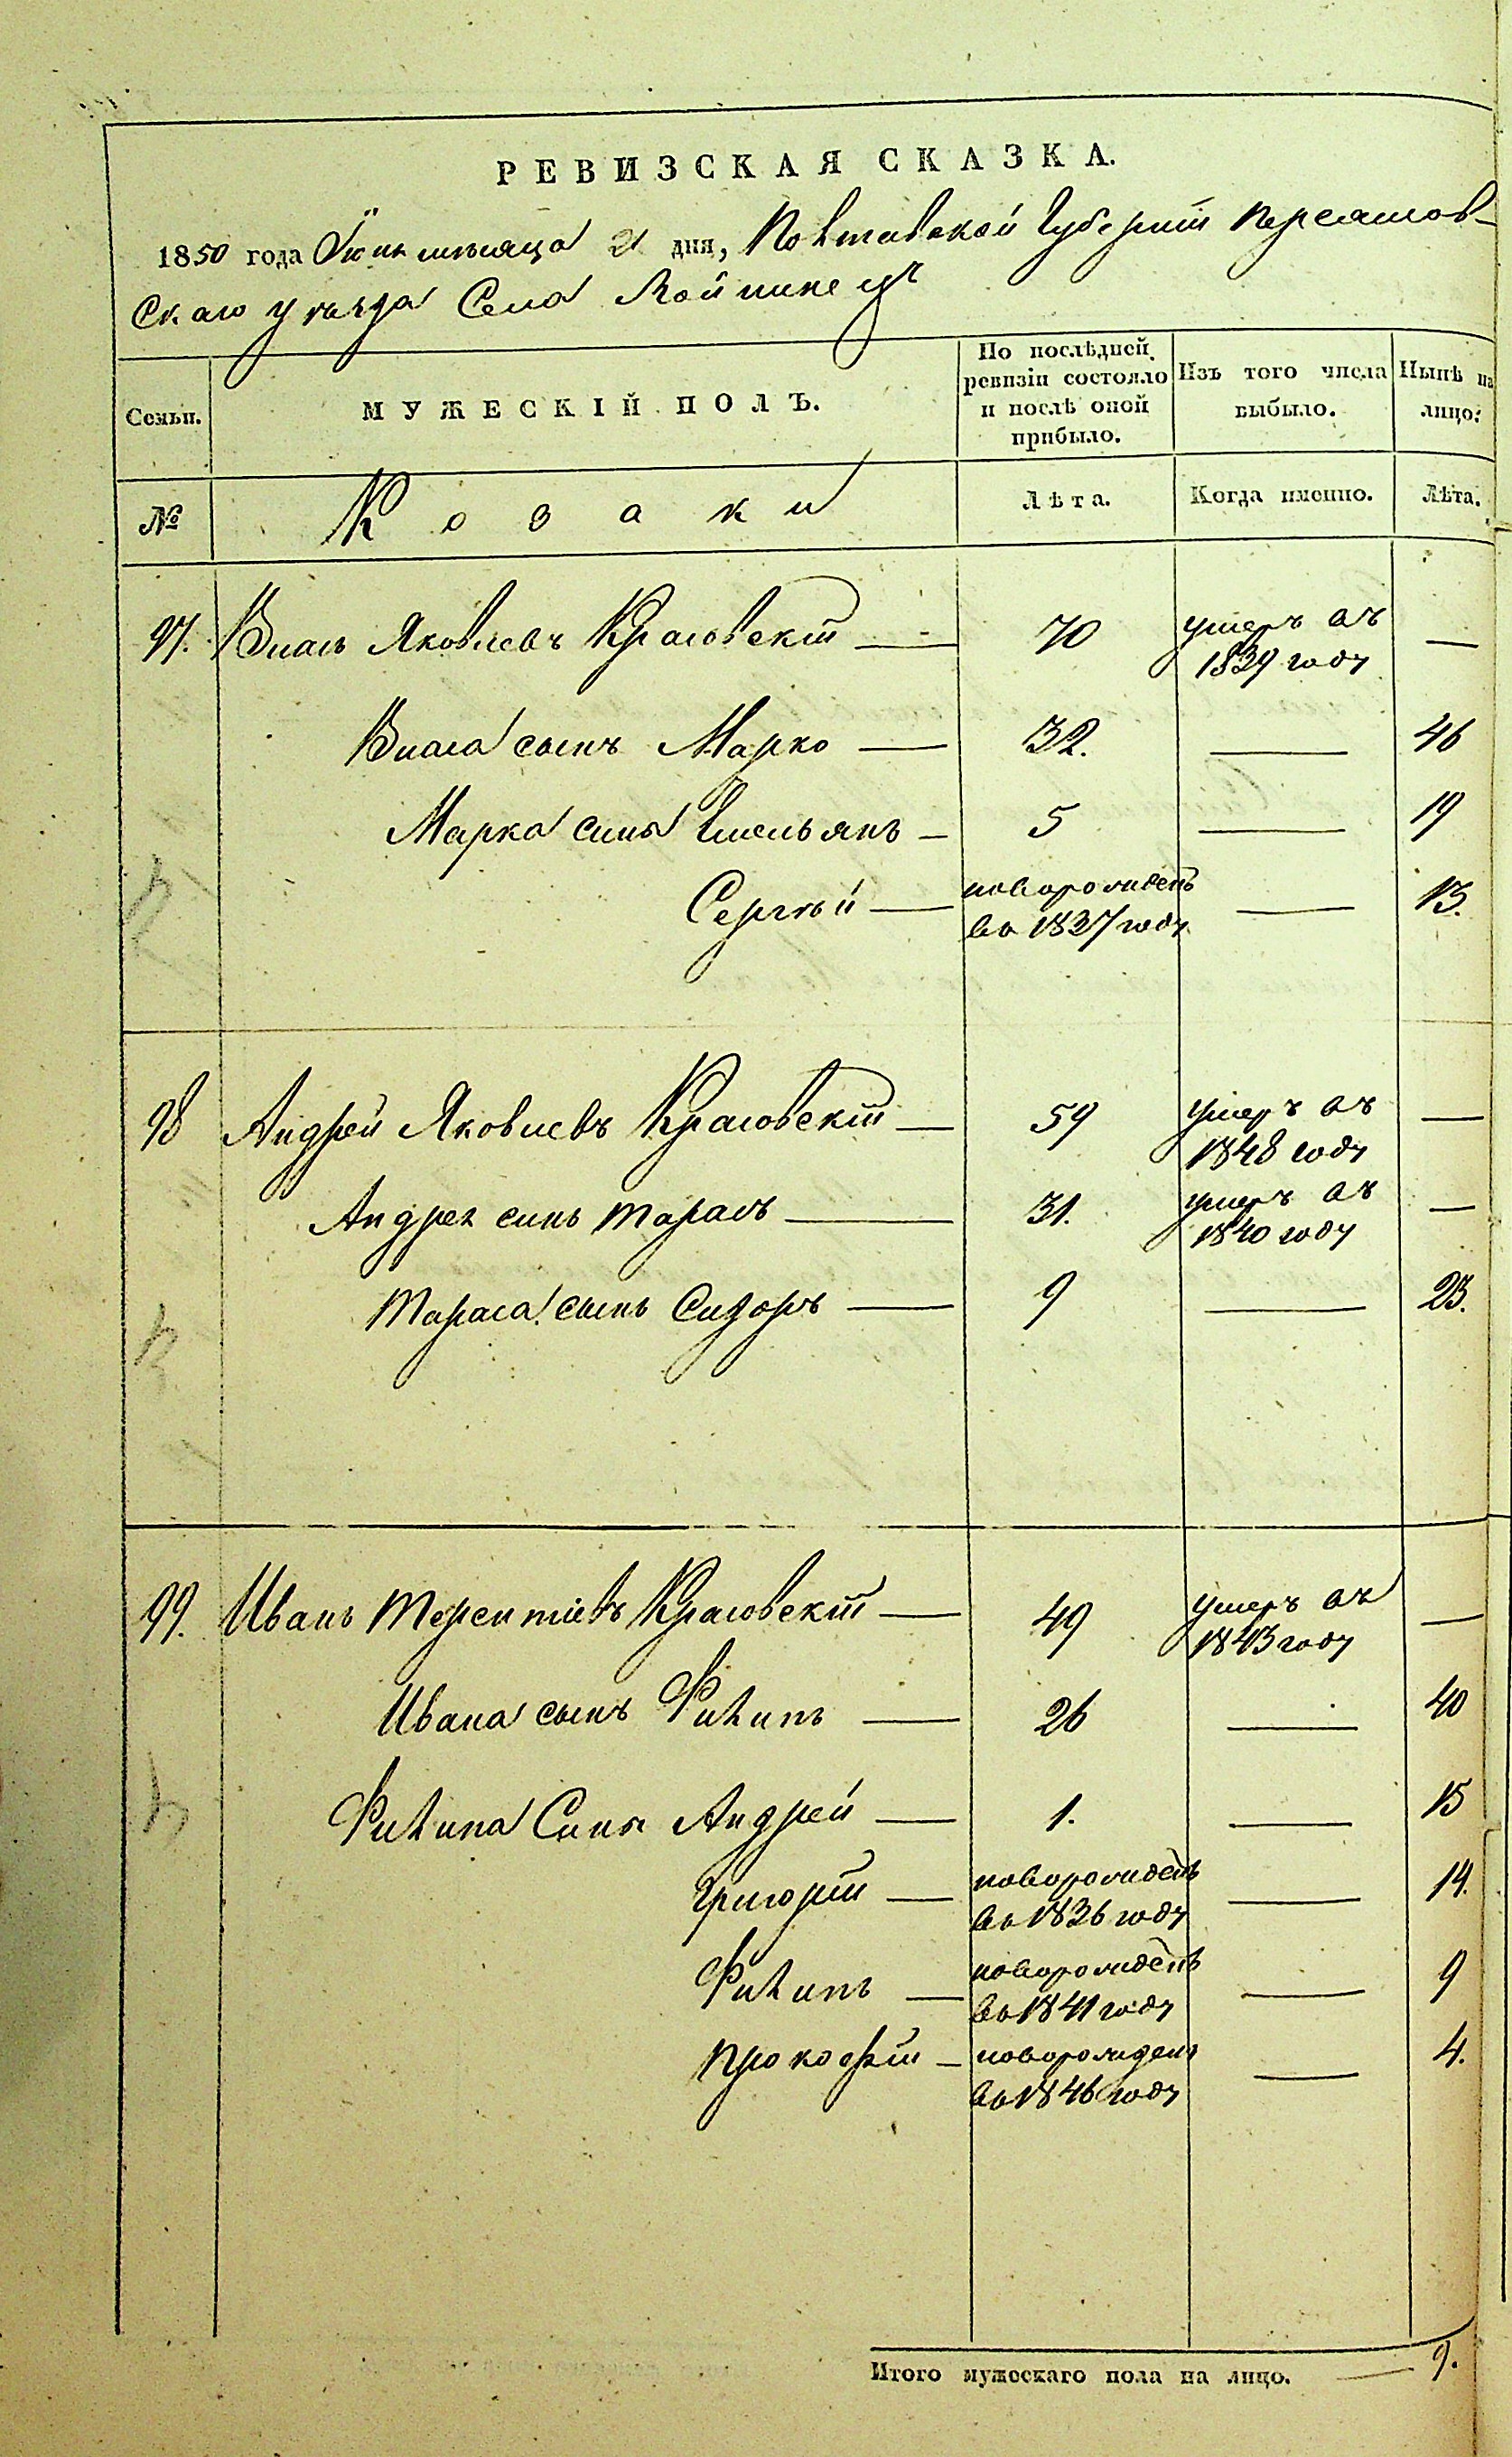 РЕВИЗСКАЯ СКАЗКА.
1850 года Іюня мѣсяца 21 дня, Полтавской Губерніи Переяслов-
скаго уѣзда Села Войтовецъ
Семьи. МУЖЕСКІЙ ПОЛЪ. По послѣдней ревизіи состояло и послѣ оной прибыло. Изъ того числа выбыло. Нынѣ на лицо:
№ Козаки Лѣта. Когда именно. Лѣта.
97. Власъ Яковлевъ Красовскій — 70 умеръ въ 1839 году —
Власа сынъ Марко — 32. — 46
Марка сыны Емельянъ — 5 — 19
Сергѣй — новорожденъ въ 1837 году — 13.
98 Андрей Яковлевъ Красовскій — 59 умеръ въ 1848 году —
Андрея сынъ Тарасъ — 31. умеръ въ 1840 году —
Тараса сынъ Сидоръ — 9 — 23.
99. Иванъ Терентіевъ Красовскій — 49 умеръ въ 1843 году —
Ивана сынъ Филипъ — 26 — 40
Филипа Сыны Андрей — 1. — 15
Григорій — новорожденъ въ 1836 году — 14.
Филипъ — новорожденъ въ 1841 году — 9
Прокофій — новорожденъ въ 1846 году — 4.
Итого мужескаго пола на лицо. — 9.